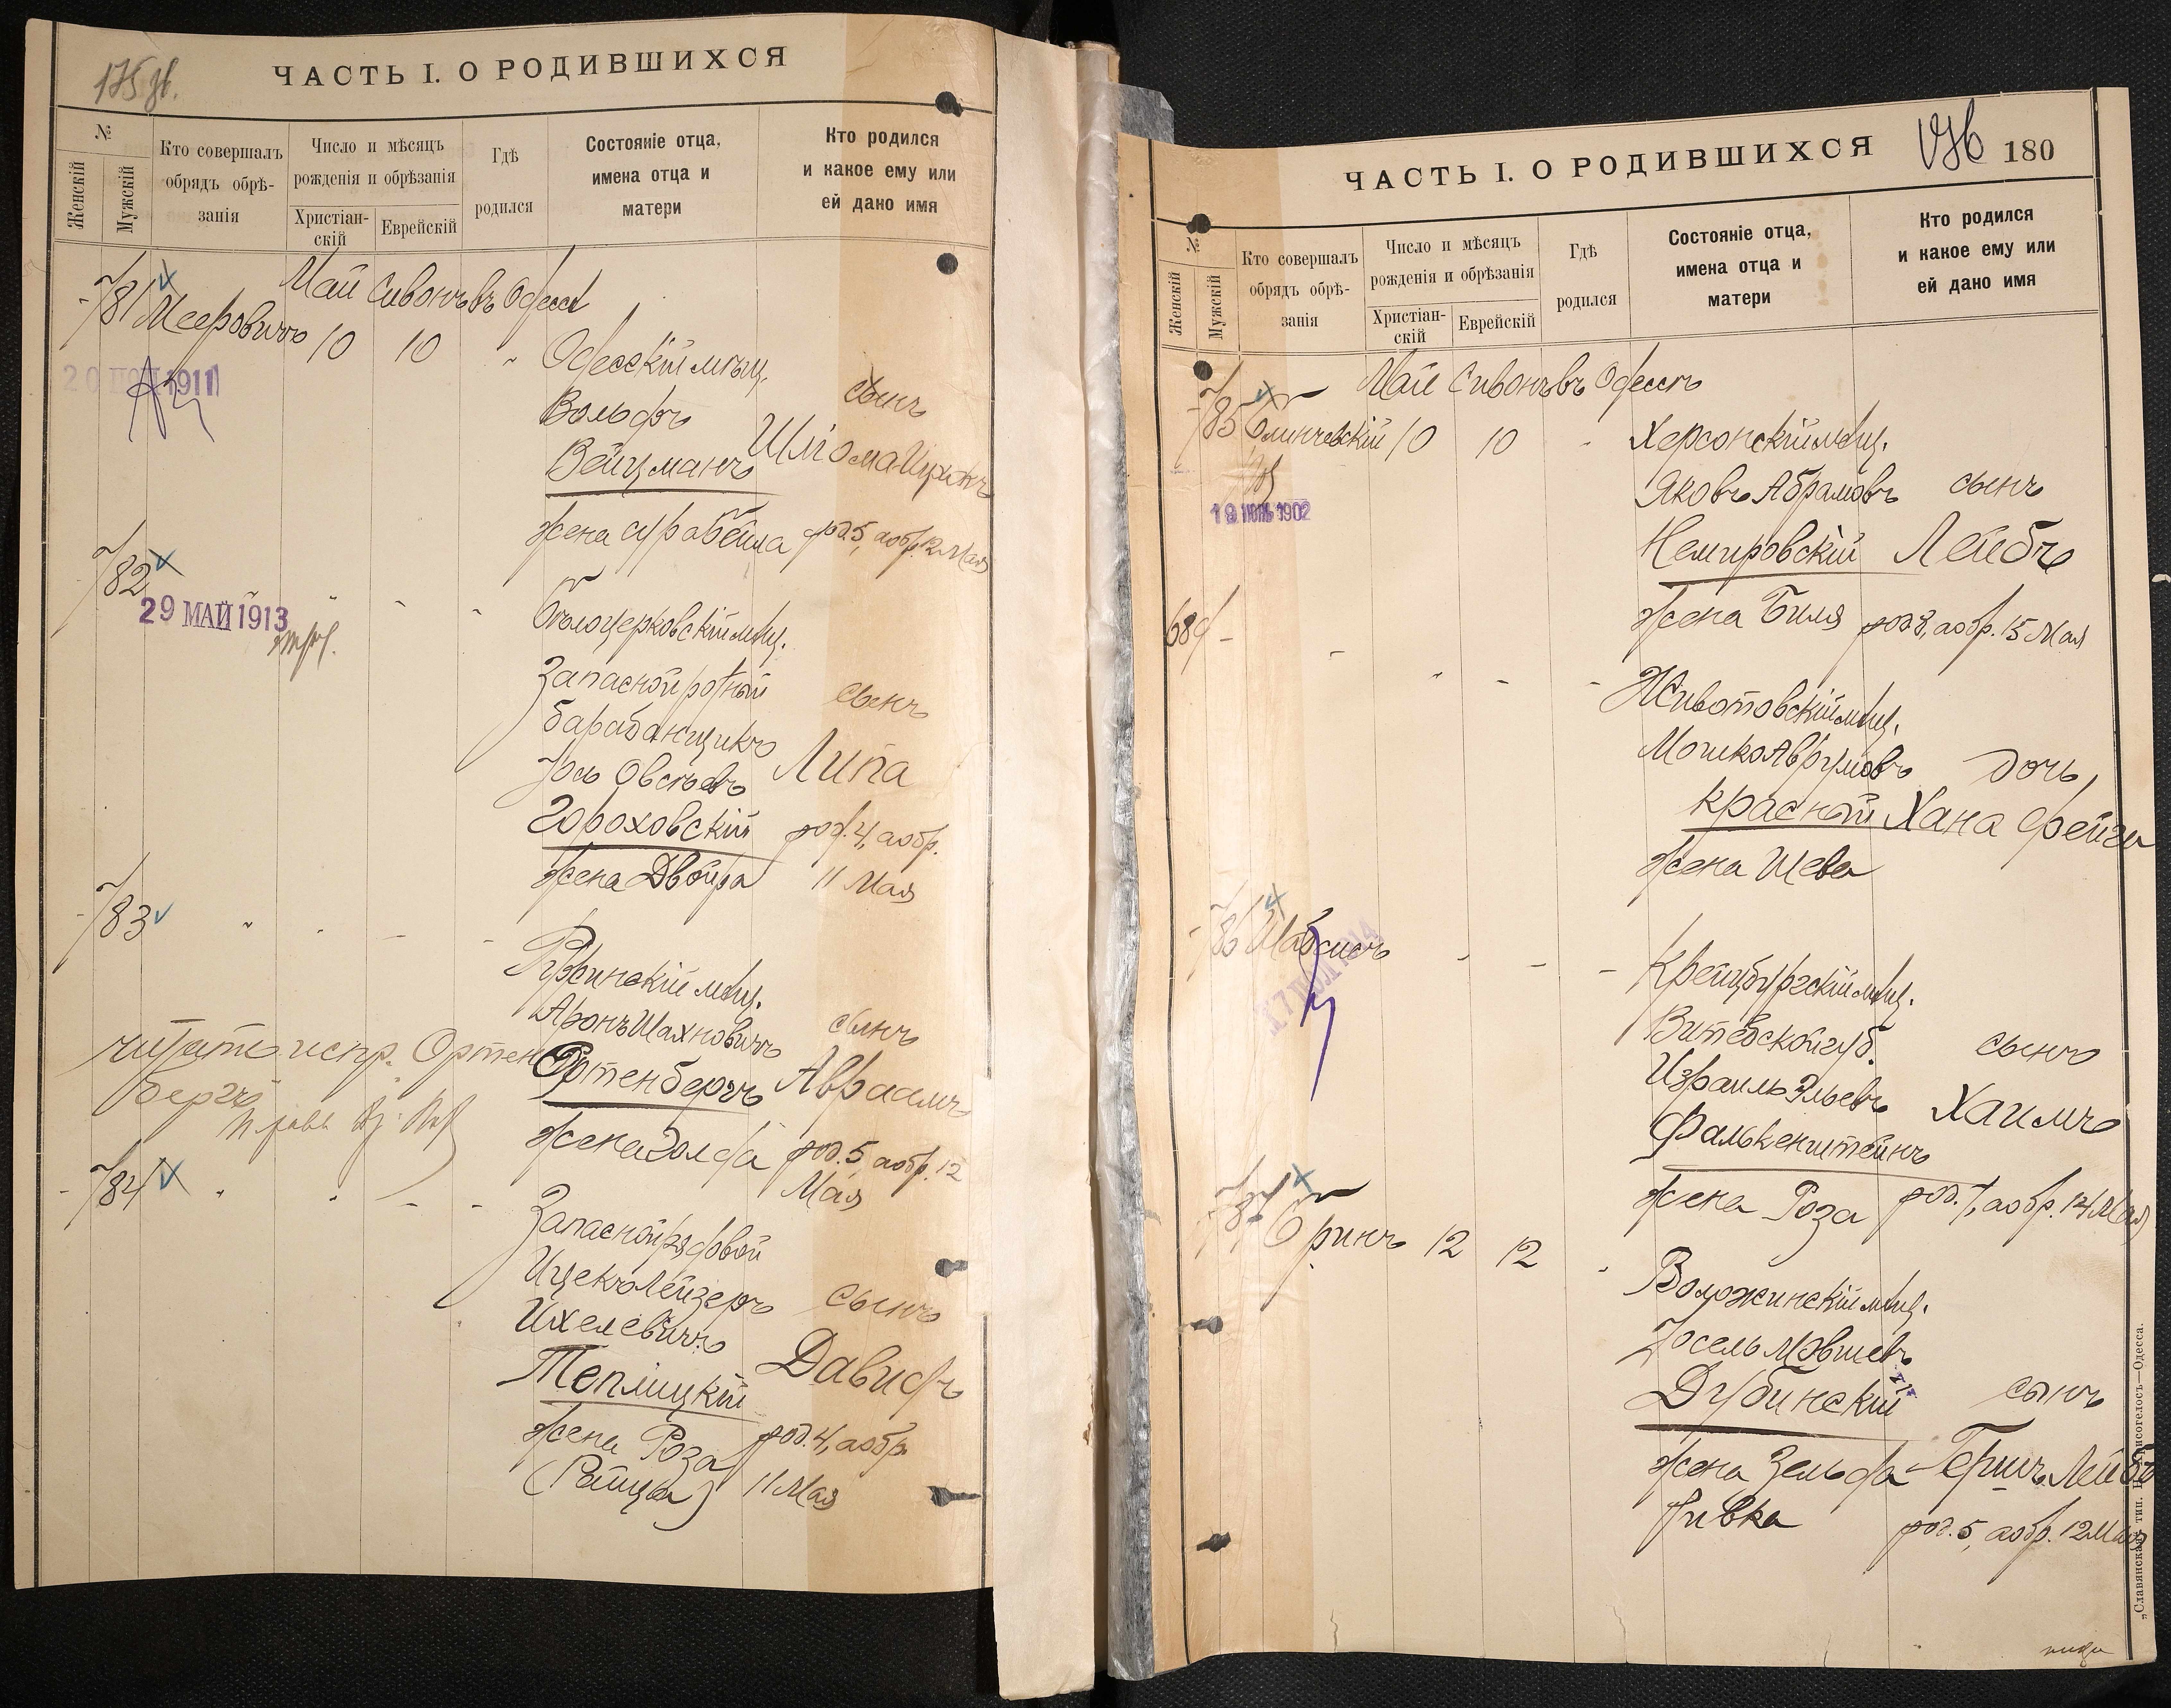 ЧАСТЬ I. О РОДИВШИХСЯ
№
Женскій
Мужскій
Кто совершалъ
обрядъ обрѣ-
занія
Число и мѣсяцъ
рожденія и обрѣзанія
Христіан-
скій
Еврейскій
Гдѣ
родился
Состояніе отца,
имена отца и
матери
Кто родился
и какое ему или
ей дано имя
Май Сивонъ въ Одессѣ
781 Мееровичъ 10 10 " Одесскій мѣщ.
20 1911
Вольфъ сынъ
Вейцманъ Шлiома Ицикъ
жена Сура Бейла род. 5, а обр. 12 Мая
782 Бѣлоцерковскій мѣщ.
29 МАЙ 1913
Запасной ротный сынъ
барабанщикъ
Іось Овсѣевъ Липа
Гороховскій род. 4, а обр.
жена Двойра 11 Мая
783 " мѣщ.
Аронъ Шахновичъ сынъ
читать испр. Ортен
бергъ
Ортенбергъ Авраамъ
жена Голда род. 5, а обр. 12
Мая
784 " " - - Запасной рядовой
Ицекъ Лейзеръ сынъ
Ихелевичъ
Теплицкій Давидъ
жена Роза род. 4, а обр.
(Рейца) 11 Мая
ЧАСТЬ I. О РОДИВШИХСЯ 180
№
Женскій
Мужскій
Кто совершалъ
обрядъ обрѣ-
занія
Число и мѣсяцъ
рожденія и обрѣзанія
Христіан-
скій
Еврейскій
Гдѣ
родился
Состояніе отца,
имена отца и
матери
Кто родился
и какое ему или
ей дано имя
Май Сивонъ въ Одессѣ
785 10 10 Херсонскій мѣщ.
Яковъ Абрамовъ сынъ
19 1902
Немировскій Лейбъ
жена Биля род. 8, а обр. 15 Мая
689 - Животовскій мѣщ.
Мошко Аврумовъ дочь
Красный Хана Фейга
жена Шева
786 Шабсисъ Крейцбургскій мѣщ.
Витебской губ. сынъ
Израиль Эльевъ Хаимъ
Фалькенштейнъ
жена Роза род. 7, а обр. 14 Мая
787 Гринъ 12 12 Воложинскій мѣщ.
Іосель Мовшевъ
Дубинскій сынъ
жена Зельда Гершъ Лейбъ
Ривка род. 5, а обр. 12 Мая
„Славянская" тип. Е. Хрисогелосъ—Одесса.